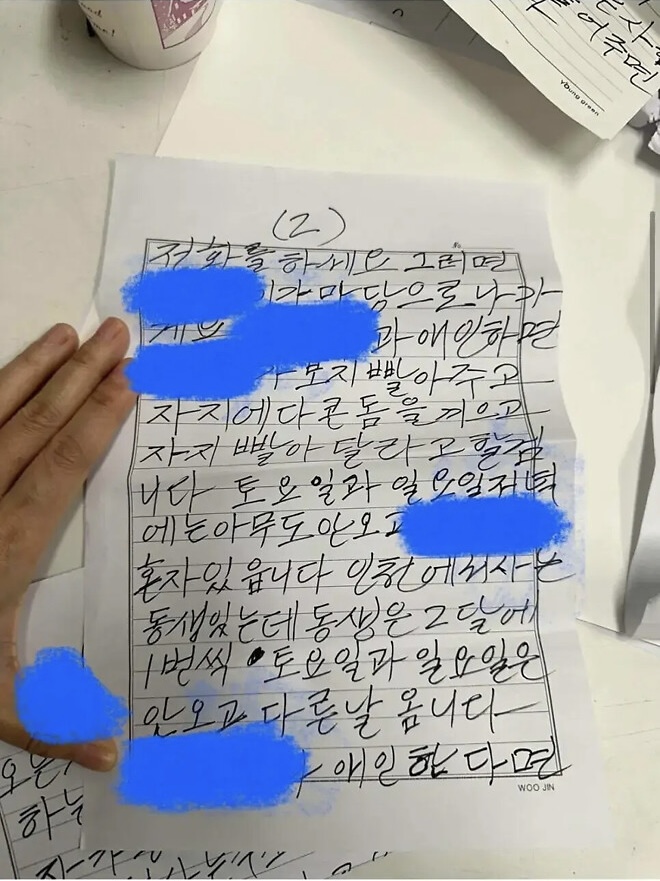 어주면
young green
(2)
전화를 하세요 그러면
이가 마당으로 나가
게요 과 애인하면
보지 빨아주고
자지에다 콘돔을 끼으고
자지 빨아 달라고 할겁
니다 토요일과 일요일저녁
에는 아무도 안오고
혼자 있읍니다 인천에 사는
동생있는데 동생은 2달에
1번씩 토요일과 일요일은
안오고 다른날 옵니다
애인한다면
WOO JIN
오는
하는